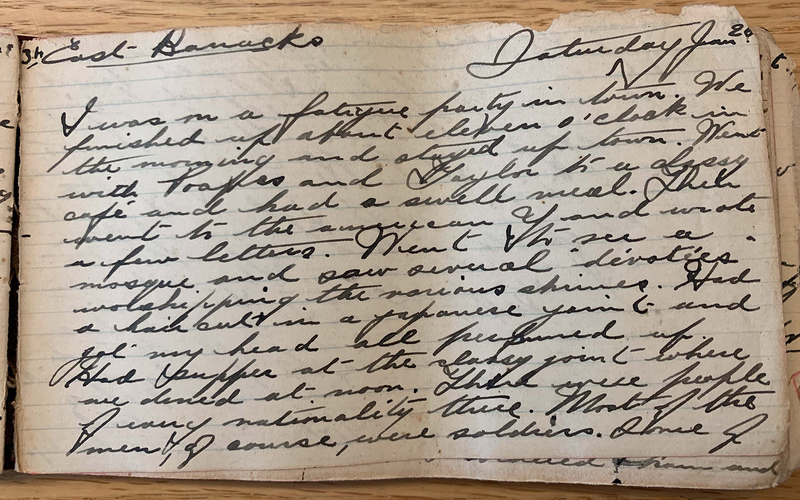 East Barracks Saturday Jan 20
I was on a fatigue party in town. We
finished up about eleven o'clock in
the morning and stayed up town. Went
with and Taylor to a classy
café and had a swell meal. Then
went to the american Y and wrote
a few letters. Went to see a
mosque and saw several devotees
worshipping the various shrines. Had
a hair cut in a japanese joint and
got my head all perfumed up.
Had supper at the classy joint where
we dined at noon. There were people
of every nationality there. Most of the
men, of course, were soldiers. Some of